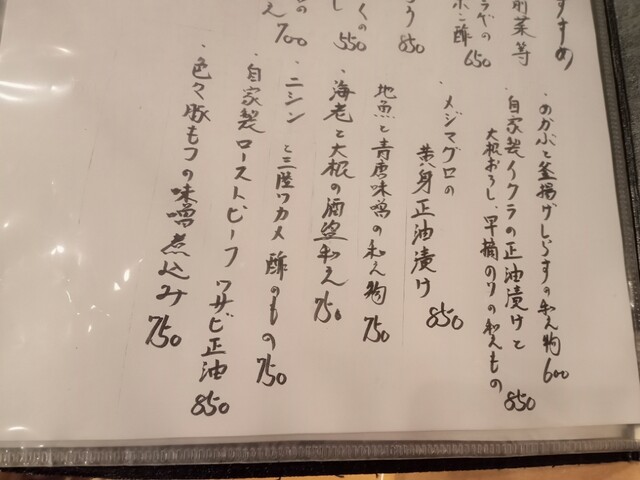 すすめ
前菜等
ポン酢
650
850
550
700
・めかぶと釜揚げしらすの和え物 600
・自家製イクラの正油漬けと
大根おろし、早摘のりの和えもの 850
・メジマグロの
黄身正油漬け 850
地魚と青唐味噌の和え物 750
・海老と大根の酒盗和え 750
・ニシンと三陸ワカメ酢のもの 750
・自家製ローストビーフ ワサビ正油 850
・色々豚もつの味噌煮込み 750